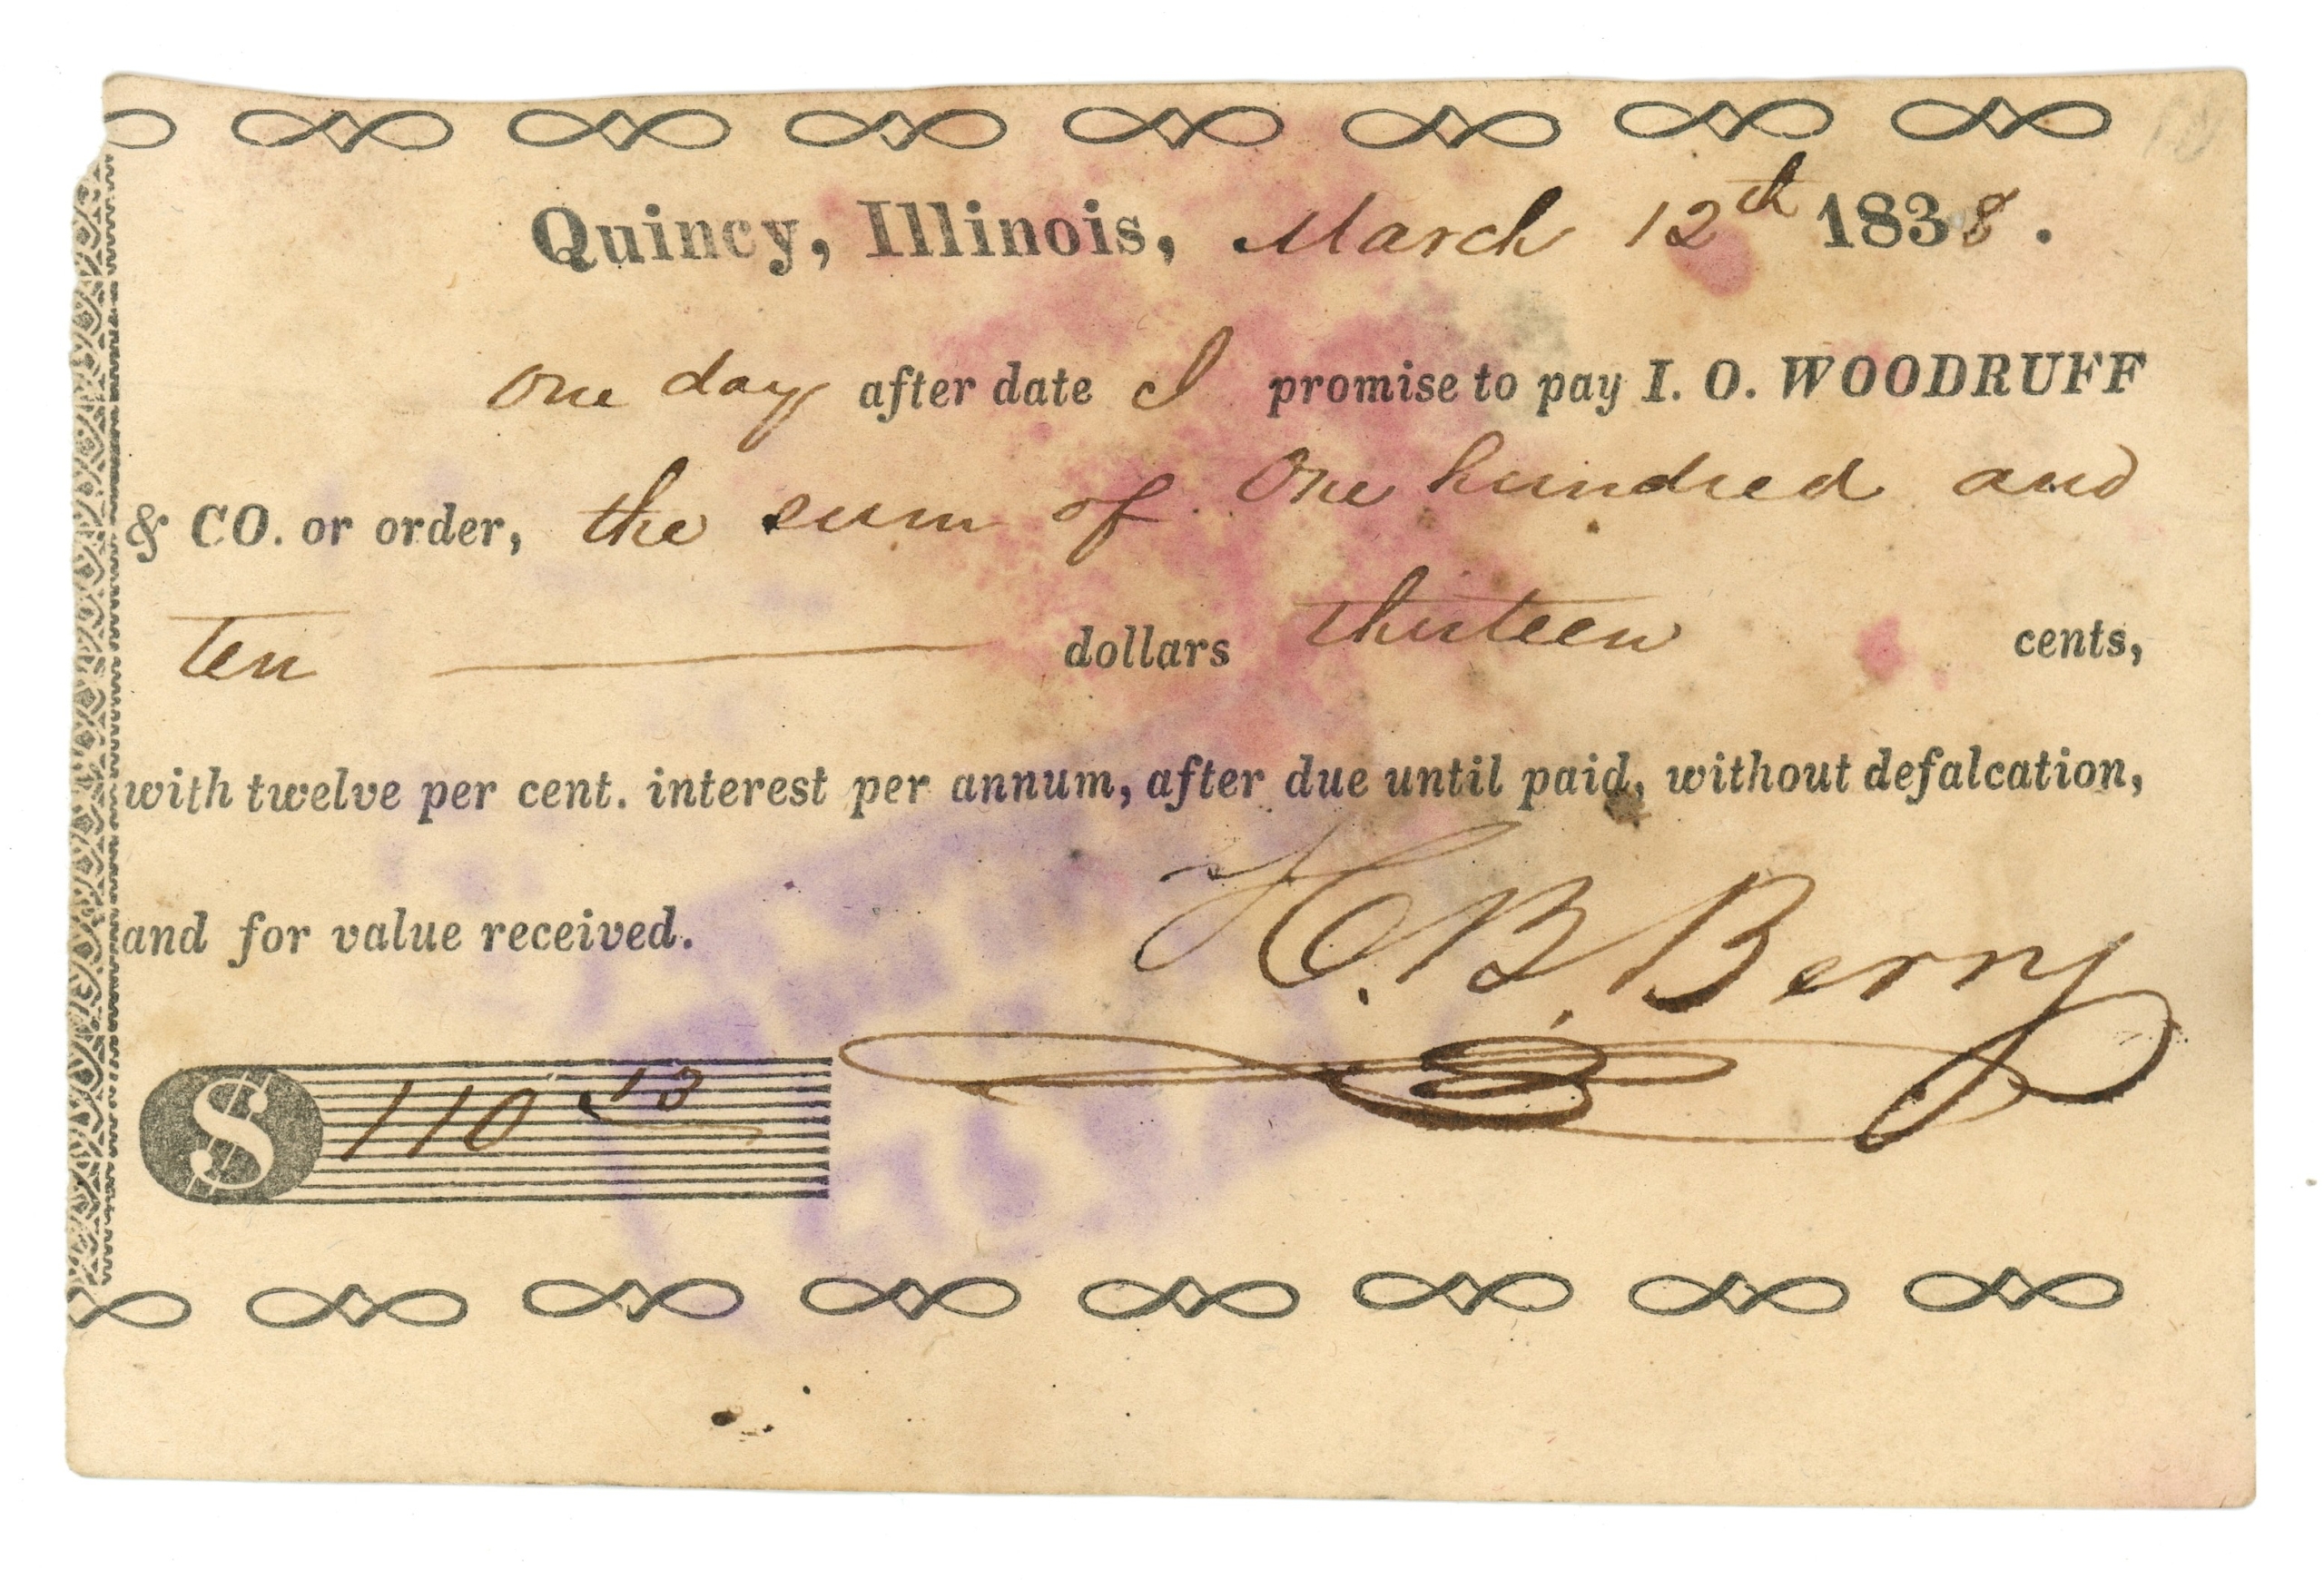 Quincy, Illinois, March 12th 1838.
One day after date I promise to pay I. O. WOODRUFF
& CO. or order, the sum of One hundred and
Ten dollars thirteen cents,
with twelve per cent. interest per annum, after due until paid, without defalcation,
and for value received.
H. B. Berry
$ 110 13